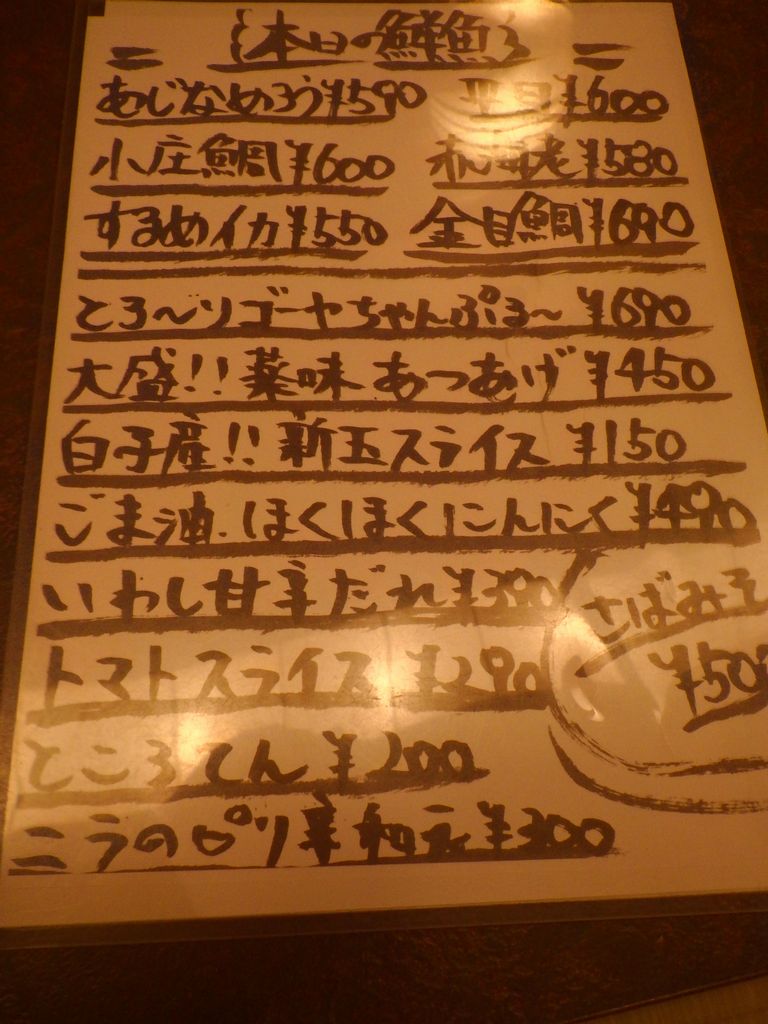 本日の鮮魚
あじなめろう¥590 平目¥600
小庄鯛¥600 赤海老¥580
するめイカ¥550 金目鯛¥690
とろ〜りゴーヤちゃんぷる〜 ¥690
大盛!! 薬味 あつあげ ¥450
白子産!! 新玉スライス ¥150
ごま油.ほくほくにんにく¥490
いわし甘辛だれ¥390
さばみそ
¥500
トマトスライス ¥290
ところてん ¥200
ニラのピリ辛和え¥300